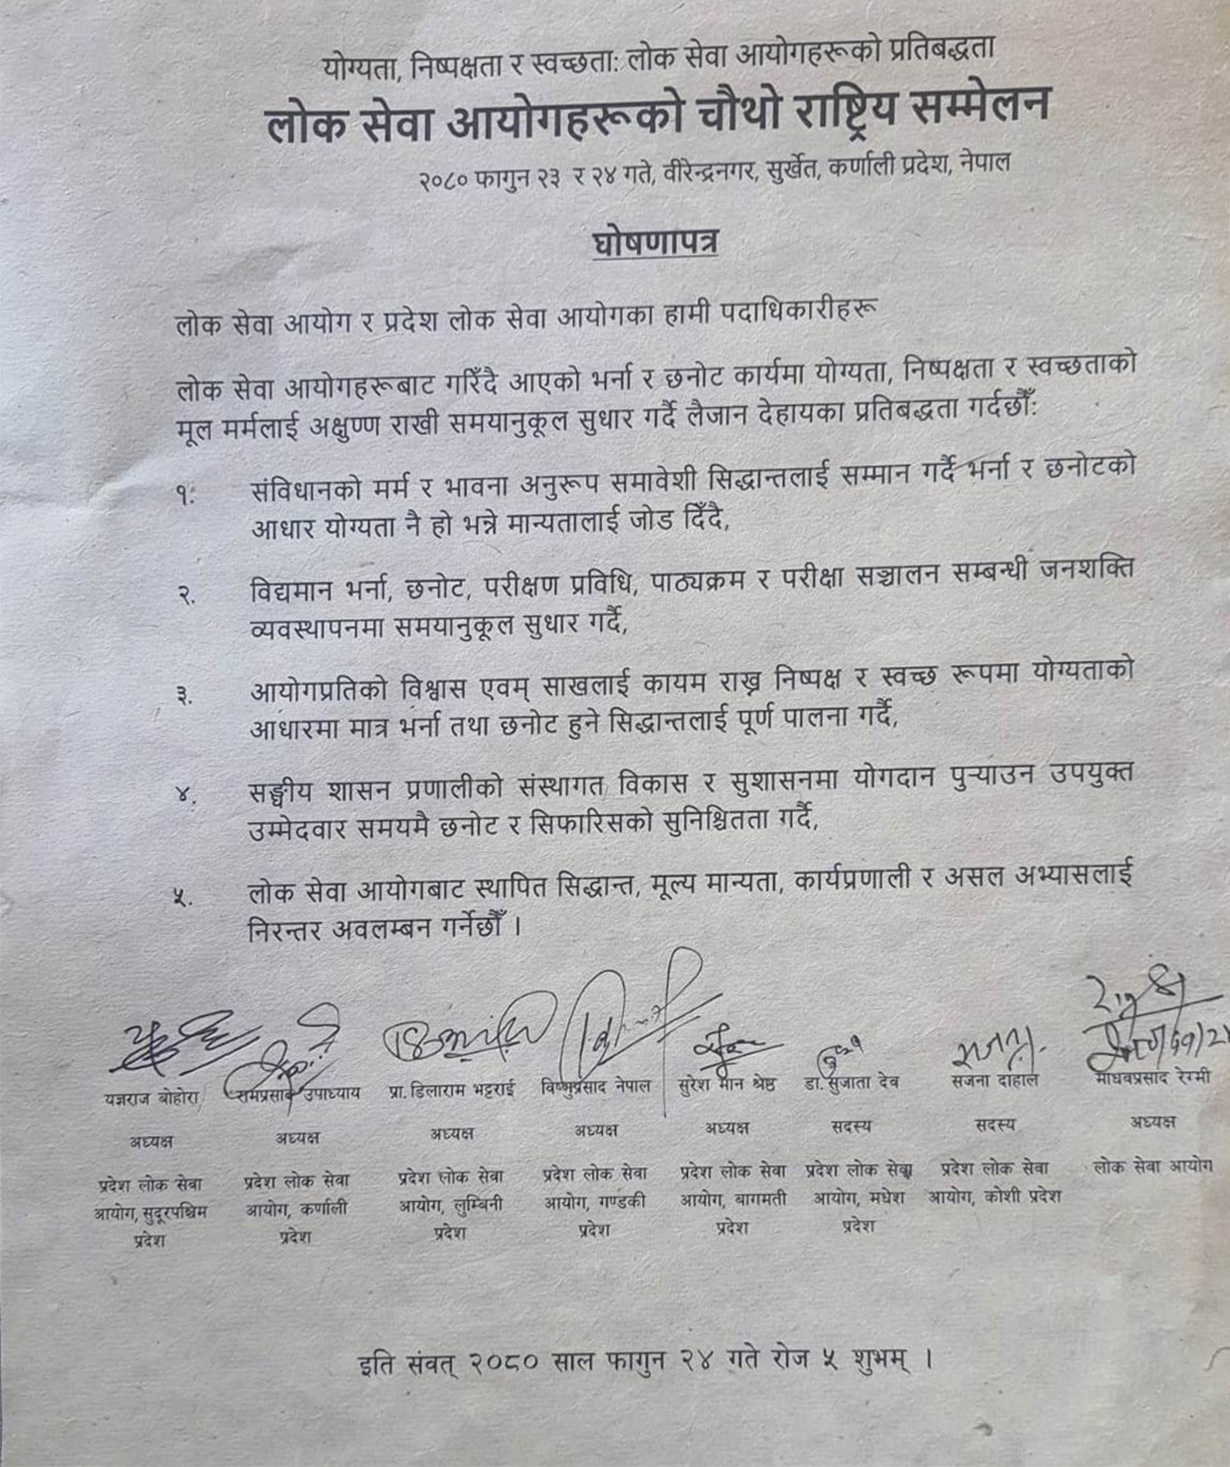 योग्यता, निष्पक्षता र स्वच्छता: लोक सेवा आयोगहरूको प्रतिबद्धता
लोक सेवा आयोगहरूको चौथो राष्ट्रिय सम्मेलन
२०८० फागुन २३ र २४ गते, वीरेन्द्रनगर, सुर्खेत, कर्णाली प्रदेश, नेपाल
घोषणापत्र
लोक सेवा आयोग र प्रदेश लोक सेवा आयोगका हामी पदाधिकारीहरू
लोक सेवा आयोगहरूबाट गरिँदै आएको भर्ना र छनोट कार्यमा योग्यता, निष्पक्षता र स्वच्छताको
मूल मर्मलाई अक्षुण्ण राखी समयानुकूल सुधार गर्दै लैजान देहायका प्रतिबद्धता गर्दछौँ:
१. संविधानको मर्म र भावना अनुरूप समावेशी सिद्धान्तलाई सम्मान गर्दै भर्ना र छनोटको
आधार योग्यता नै हो भन्ने मान्यतालाई जोड दिँदै,
२. विद्यमान भर्ना, छनोट, परीक्षण प्रविधि, पाठ्यक्रम र परीक्षा सञ्चालन सम्बन्धी जनशक्ति
व्यवस्थापनमा समयानुकूल सुधार गर्दै,
३. आयोगप्रतिको विश्वास एवम् साखलाई कायम राख्न निष्पक्ष र स्वच्छ रूपमा योग्यताको
आधारमा मात्र भर्ना तथा छनोट हुने सिद्धान्तलाई पूर्ण पालना गर्दै,
४. सङ्घीय शासन प्रणालीको संस्थागत विकास र सुशासनमा योगदान पुऱ्याउन उपयुक्त
उम्मेदवार समयमै छनोट र सिफारिसको सुनिश्चितता गर्दै,
५. लोक सेवा आयोगबाट स्थापित सिद्धान्त, मूल्य मान्यता, कार्यप्रणाली र असल अभ्यासलाई
निरन्तर अवलम्बन गर्नेछौँ ।
यज्ञराज बोहोरा रामप्रसाद उपाध्याय प्रा. डिलाराम भट्टराई विष्णुप्रसाद नेपाल सुरेश मान श्रेष्ठ डा. सुजाता देव सजना दाहाल माधवप्रसाद रेग्मी
अध्यक्ष अध्यक्ष अध्यक्ष अध्यक्ष अध्यक्ष सदस्य सदस्य अध्यक्ष
प्रदेश लोक सेवा प्रदेश लोक सेवा प्रदेश लोक सेवा प्रदेश लोक सेवा प्रदेश लोक सेवा प्रदेश लोक सेवा प्रदेश लोक सेवा लोक सेवा आयोग
आयोग, सुदूरपश्चिम आयोग, कर्णाली आयोग, लुम्बिनी आयोग, गण्डकी आयोग, बागमती आयोग, मधेश आयोग, कोशी प्रदेश
प्रदेश प्रदेश प्रदेश प्रदेश प्रदेश प्रदेश
इति संवत् २०८० साल फागुन २४ गते रोज ५ शुभम् ।